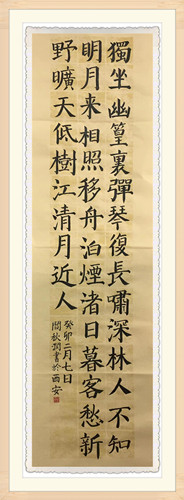 獨坐幽篁裏彈琴復長嘯深林人不知
明月来相照移舟泊煙渚日暮客愁新
野曠天低樹江清月近人
癸卯二月七日
閻秋潤書於西安